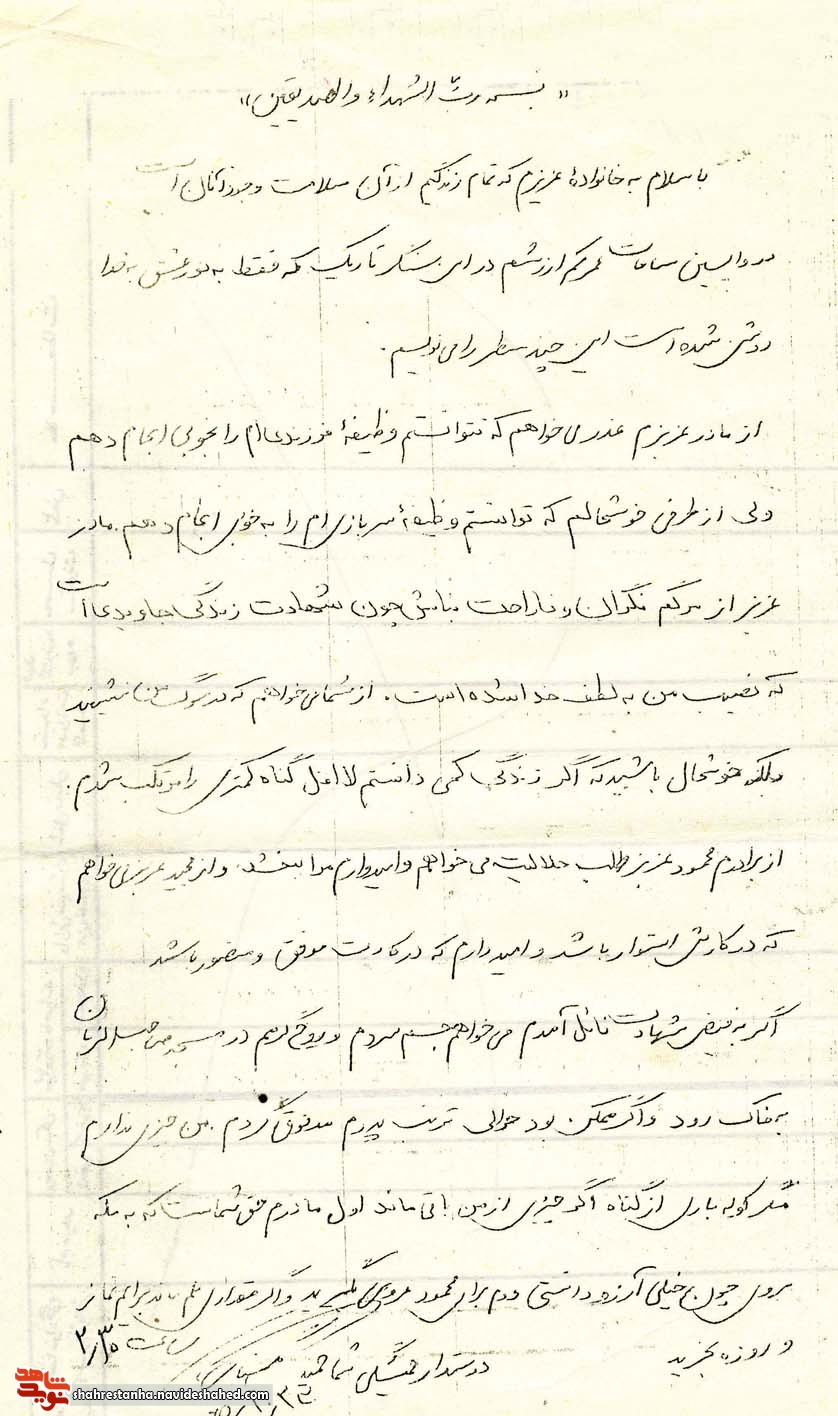 « بسمه رب الشهداء والصدیقین »
با سلام به خانوادهٔ عزیزم که تمام زندگیم از آن سلامت وجود آنان است
در واپسین ساعات عمر کم ارزشم در این سنگر تاریک که فقط به نور عشق به خدا
روشن شده است این چند سطر را می نویسم .
از مادر عزیزم عذر می خواهم که نتوانستم وظیفهٔ فرزندی ام را بخوبی انجام دهم
ولی از طرفی خوشحالم که توانستم وظیفهٔ سربازی ام را به خوبی انجام دهم . مادر
عزیز از مرگم نگران و ناراحت نباش چون شهادت زندگی جاویدی است
که نصیب من به لطف خدا شده است . از شما می خواهم که در سوگ من ننشینید
بلکه خوشحال باشید که اگر زندگی کمی داشتم لااقل گناه کمتری را مرتکب شدم .
از برادرم محمود عزیز طلب حلالیت می خواهم و امیدوارم مرا ببخشد . و از مجید عزیز می خواهم
که در کارش استوار باشد و امید دارم که در کارت موفق و منصور باشد
اگر به فیض شهادت نائل آمدم می خواهم جسم سردم و روح گرمم در مسجد صاحب الزمان
به خاک رود و اگر ممکن بود حوالی تربت پدرم مدفون گردم . من چیزی ندارم
مگر کوله باری از گناه اگر چیزی از من باقی ماند اول مادرم حق شماست که به مکه
بروی چون خیلی آرزو داشتی دوم برای محمود عروسی بگیرید و اگر مقداری هم ماند برایم نماز
و روزه بخرید
دوستدار همیشگی شما حمید
ساعت ۲/۳۰
نوید شاهد
shahrestanha.navideshahed.com